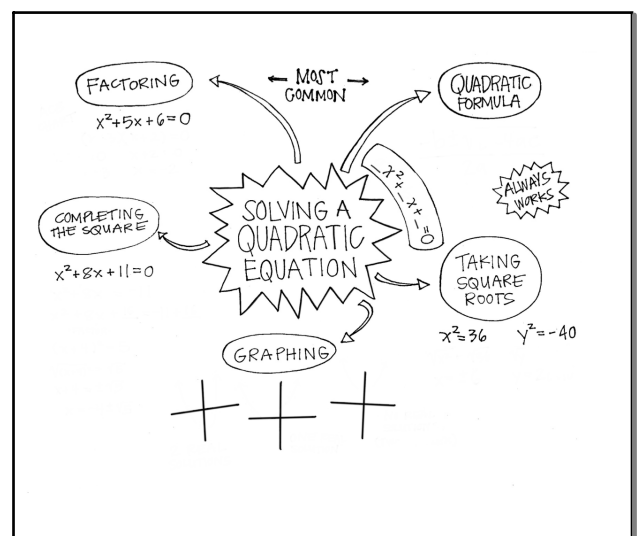 ← MOST →
COMMON
FACTORING
x²+5x+6=0
QUADRATIC
FORMULA
_x²+_x+_=0
ALWAYS
WORKS
COMPLETING
THE SQUARE
x²+8x+11=0
SOLVING A
QUADRATIC
EQUATION
TAKING
SQUARE
ROOTS
x²=36 y²=-40
GRAPHING